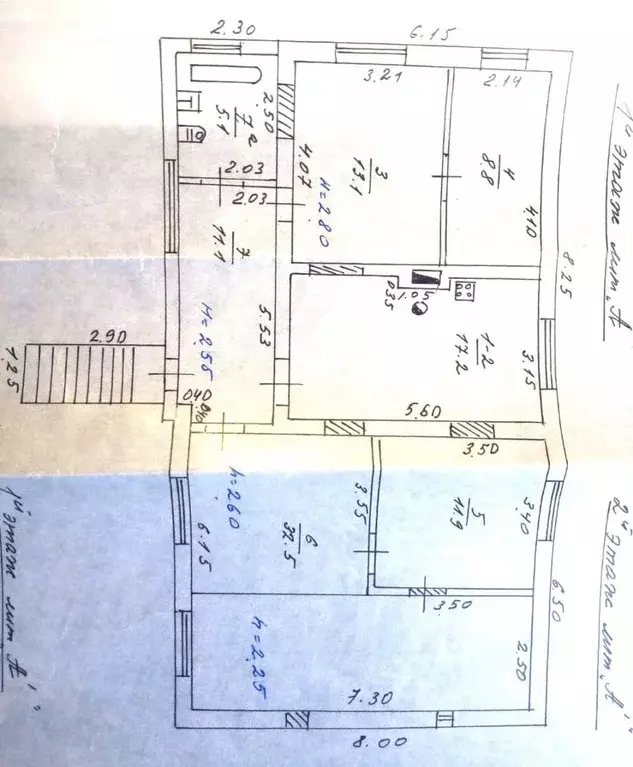 2.30
6.15
3.21
2.14
2.50
7а
5.1
4.07
3
13.1
4
8.8
2.03
2.03
н=2.80
4.10
1й этаж лит „А
7
11.1
8.25
0.35
1.05
н=2.55
5.53
1-2
17.2
3.15
2.90
1.25
0.40
0.40
5.60
3.50
h=2.60
3.55
5
11.9
3.40
6.15
6
32.5
1й этаж лит „А'"
2й этаж лит „А'"
6.50
3.50
h=2.25
2.50
7.30
8.00